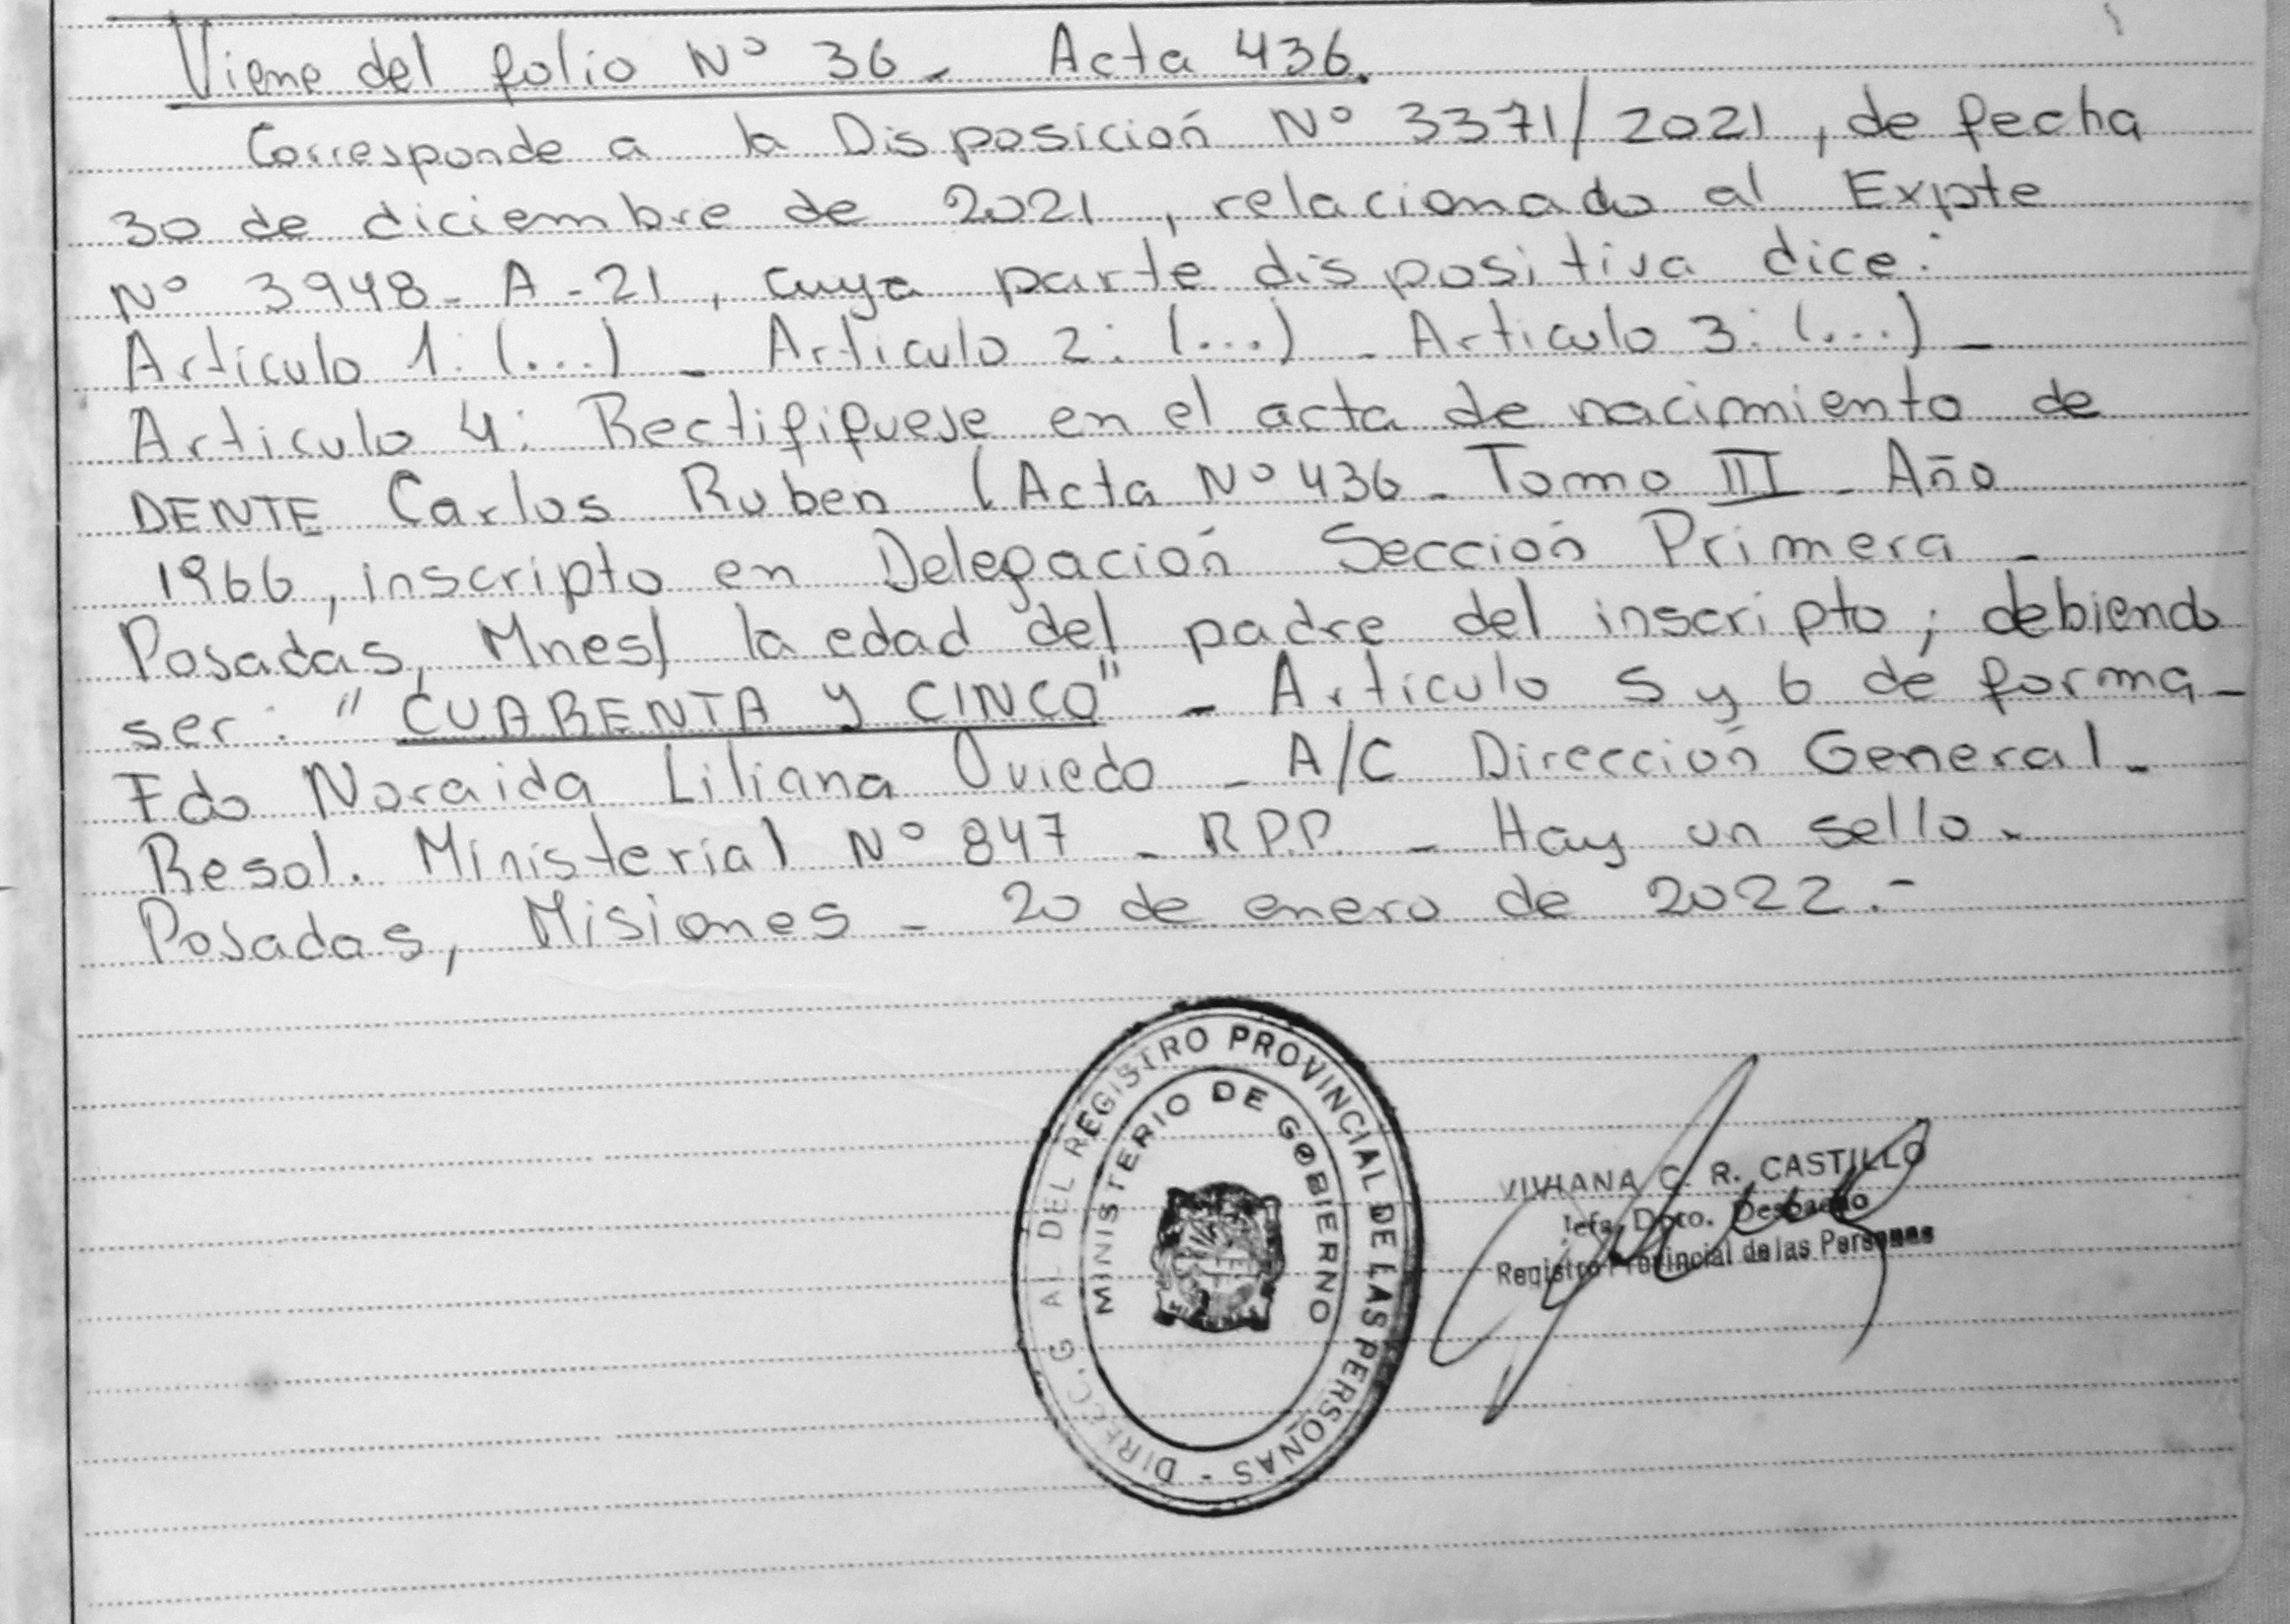 Viene del folio Nº 36 - Acta 436.
Corresponde a la Disposición Nº 3371/2021, de fecha
30 de diciembre de 2021, relacionado al Expte
Nº 3948-A-21, cuya parte dispositiva dice:
Artículo 1: (...) - Articulo 2: (...) - Articulo 3: (...) -
Articulo 4: Rectififuese en el acta de nacimiento de
DENTE Carlos Ruben (Acta Nº 436 - Tomo III - Año
1966, inscripto en Delegación Sección Primera -
Posadas, Mnes) la edad del padre del inscripto; debiendo
ser: "CUARENTA y CINCO" - Articulo 5 y 6 de forma -
Fdo Noraida Liliana Oviedo - A/C Dirección General -
Resol. Ministerial Nº 847 - R.P.P. - Hay un sello -
Posadas, Misiones - 20 de enero de 2022.-
DIRECC. G AL DEL REGISTRO PROVINCIAL DE LAS PERSONAS -
MINISTERIO DE GOBIERNO
VIVIANA C. R. CASTILLO
Jefa Dpto. Despacho
Registro Provincial de las Personas